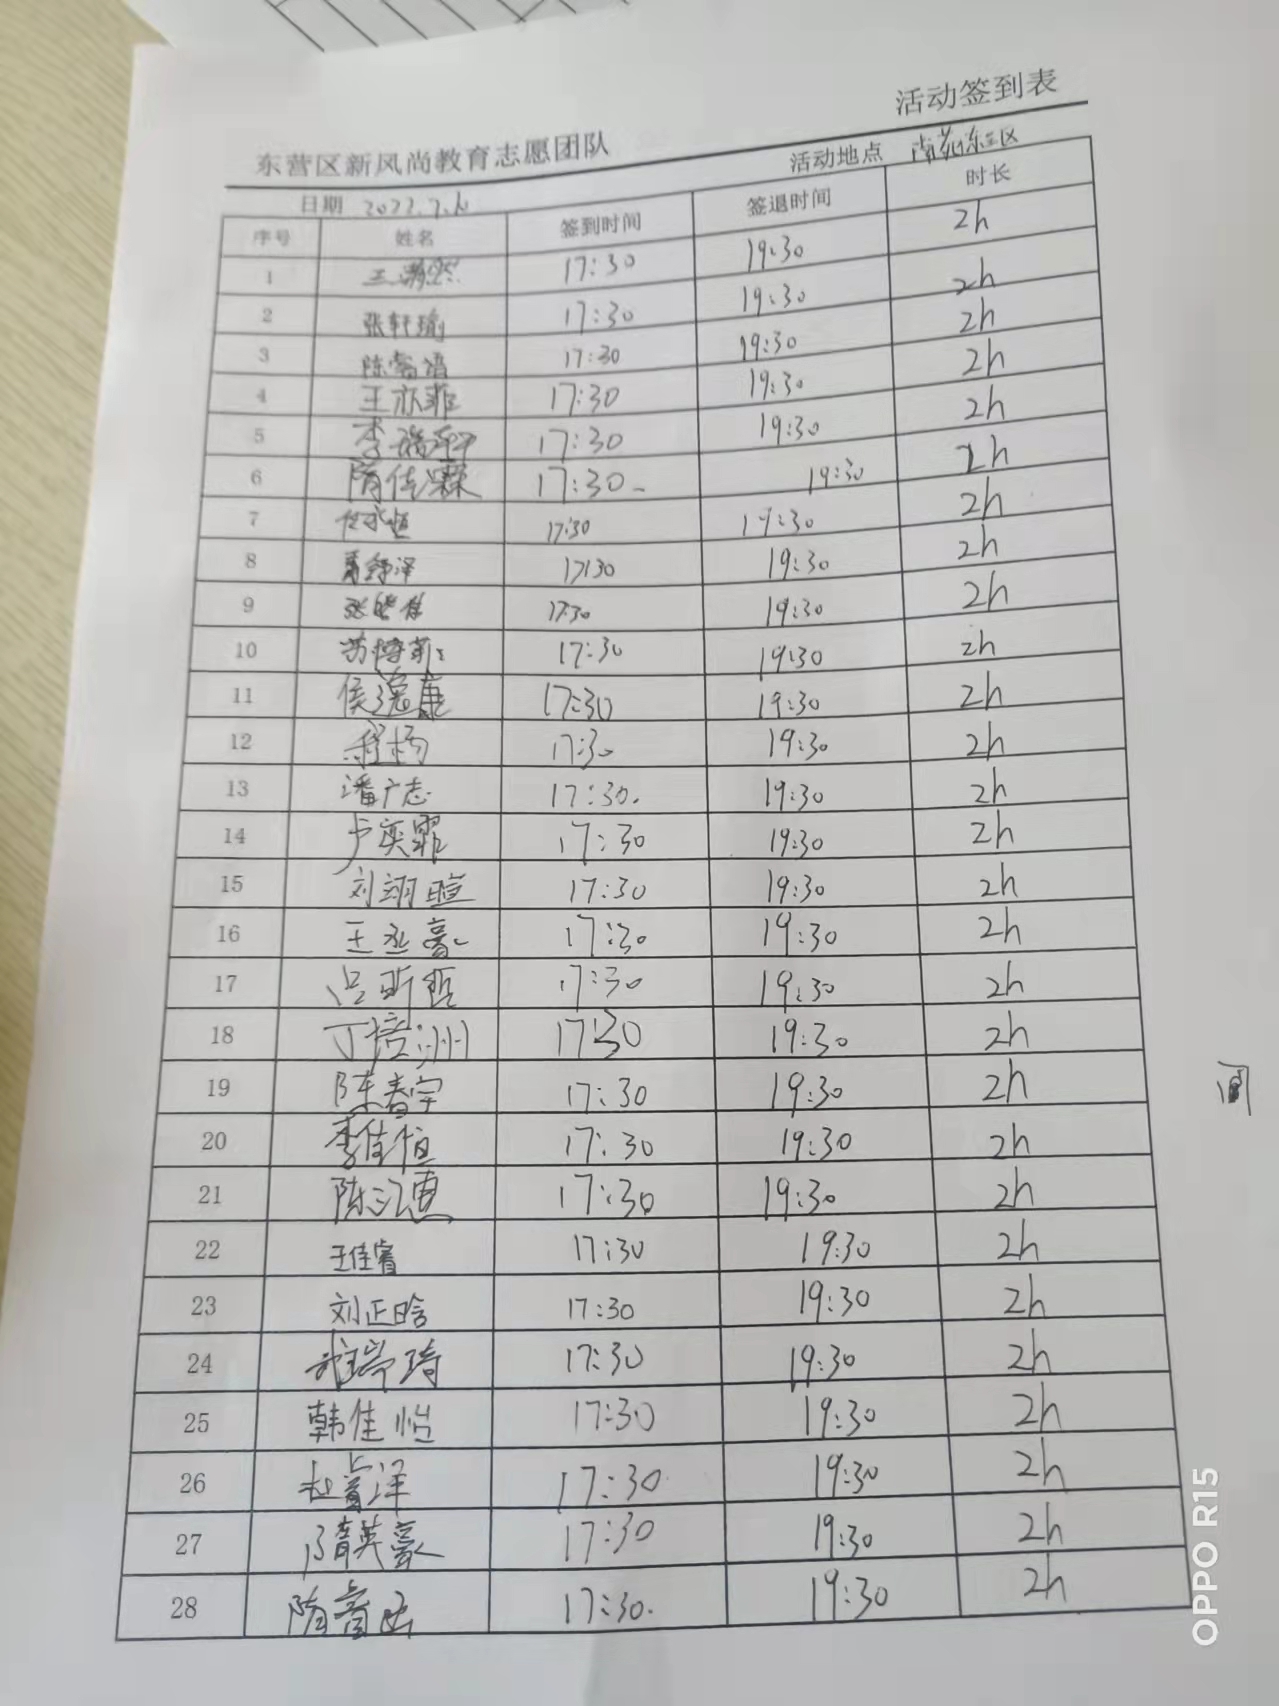 活动签到表
东营区新风尚教育志愿团队 活动地点 南苑东三区
日期 2022.7.
序号 姓名 签到时间 签退时间 时长
1 17:30 19:30 2h
2 张轩瑜 17:30 19:30 2h
3 陈 17:30 19:30 2h
4 王亦菲 17:30 19:30 2h
5 李瑞轩 17:30 19:30 2h
6 隋佳霖 17:30 19:30 2h
7 17:30 19:30 2h
8 17:30 19:30 2h
9 17:30 19:30 2h
10 苏 17:30 19:30 2h
11 侯逸康 17:30 19:30 2h
12 程杨 17:30 19:30 2h
13 潘广志 17:30. 19:30 2h
14 卢奕霏 17:30 19:30 2h
15 刘翊暄 17:30 19:30 2h
16 王丞豪 17:30 19:30 2h
17 吕昕哲 17:30 19:30 2h
18 丁培洲 17:30 19:30 2h
19 陈春宇 17:30 19:30 2h
20 李佳恒 17:30 19:30 2h
21 陈 17:30 19:30 2h
22 王佳睿 17:30 19:30 2h
23 刘正晗 17:30 19:30 2h
24 17:30 19:30 2h
25 韩佳怡 17:30 19:30 2h
26 17:30 19:30 2h
27 隋英豪 17:30 19:30 2h
28 隋 17:30. 19:30 2h
OPPO R15